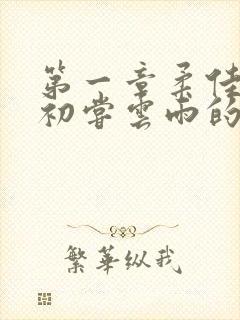 第一章柔佳
初尝雲雨的
繁華纵我